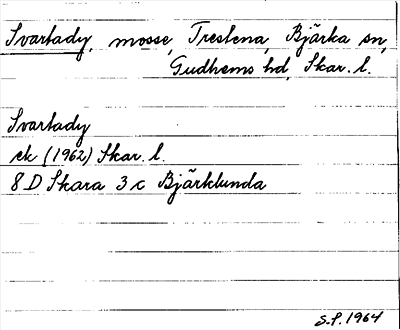 Svartady, mosse, Trestena, Bjärka sn,
Gudhems hd, Skar. l.
Svartady
ek (1962) Skar. l.
8 D Skara 3 c Bjärklunda
S.P. 1964